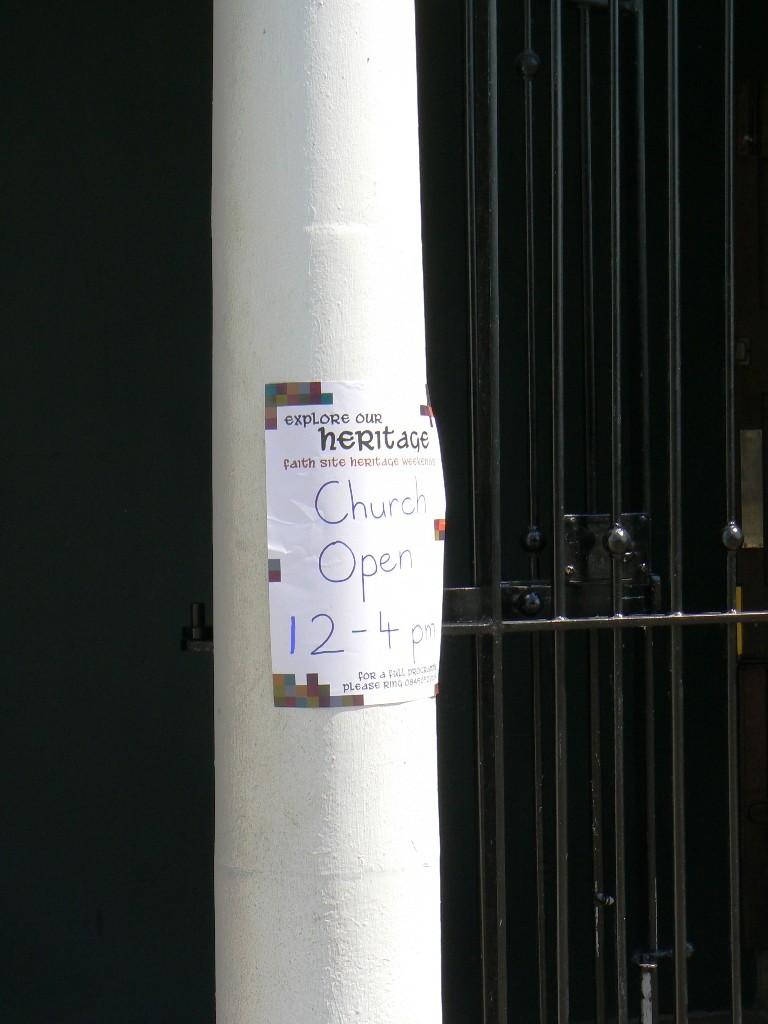 explore our
heritage
faith site heritage weekends
Church
Open
12-4 pm
for a full programme
please ring